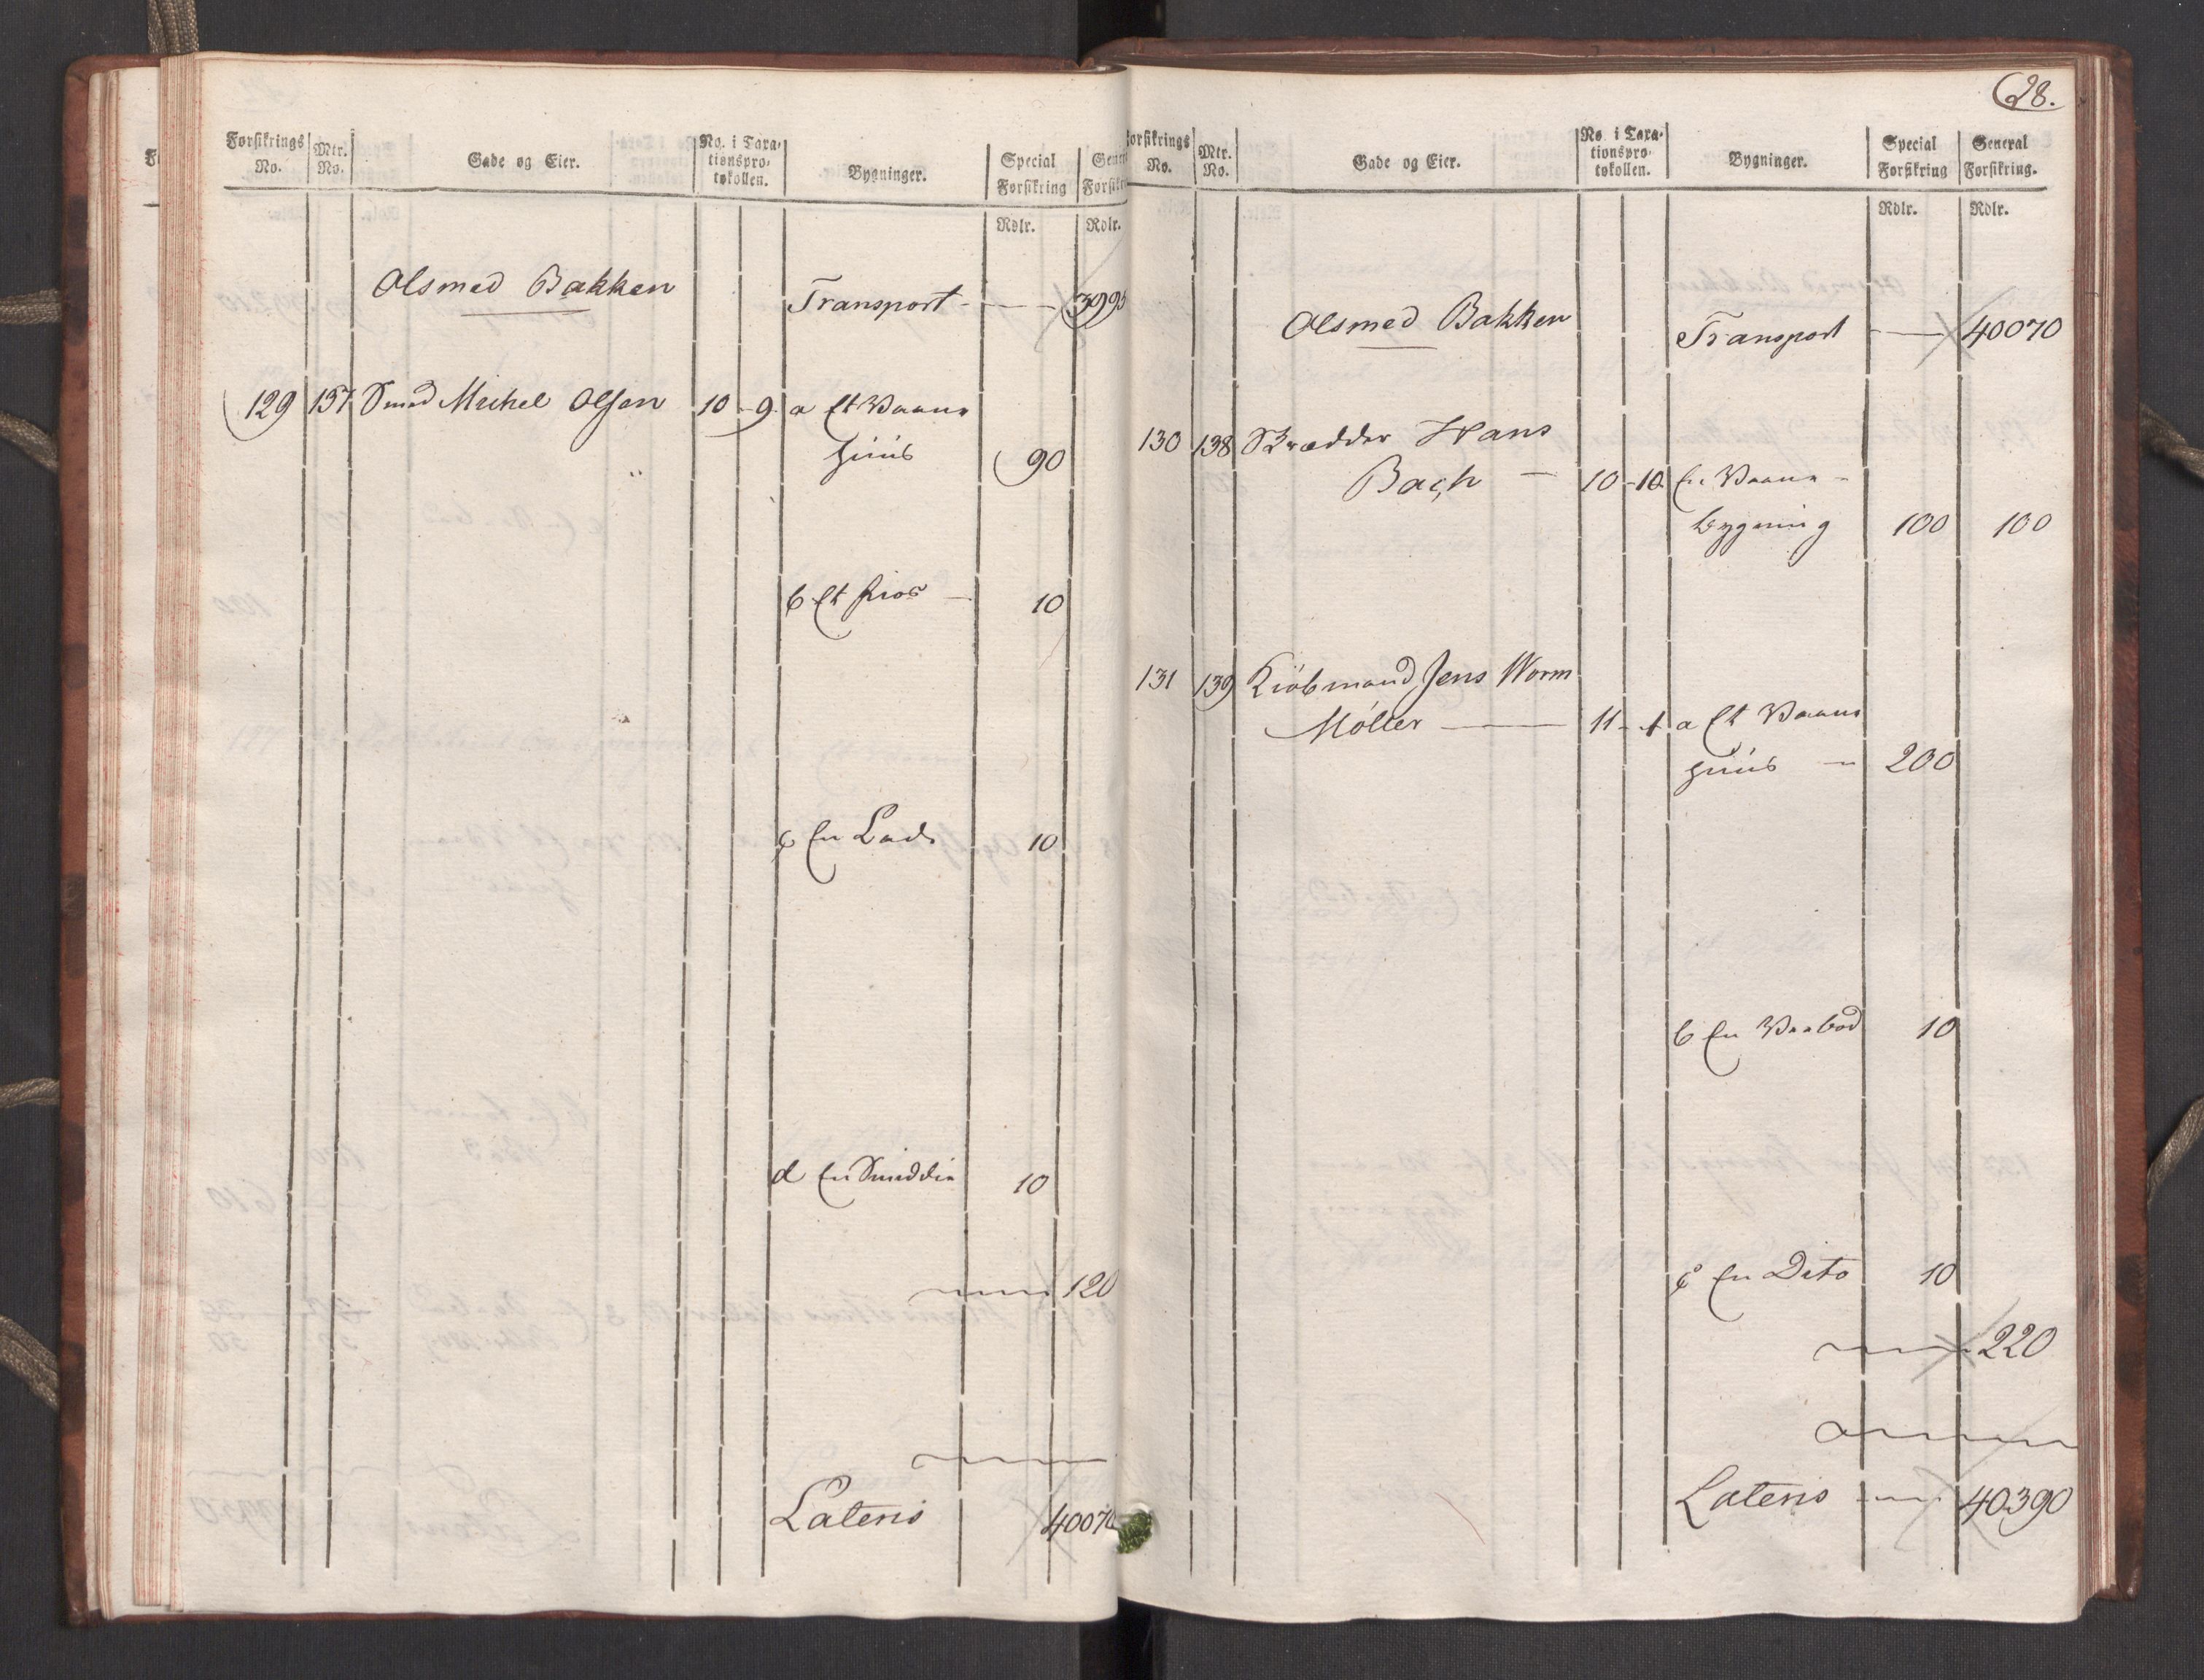 Forsikrings No. Mtr. No. Gade og Eier. No. i Taxationsprotokollen. Bygninger. Special Forsikring Gene Forsikr
Rdlr. Rdlr.
Olsmed Bakken Transport - 3995
129 137 Smed Michel Olsen 10 - 9. a Et Vaanehuus 90
b Et Fios - 10
c En Lade 10
d En Smeddie 10
120
Lateris 4007
28.
Forsikrings No. Mtr. No. Gade og Eier. No. i Taxationsprotokollen. Bygninger. Special Forsikring General Forsikring.
Rdlr. Rdlr.
Olsmed Bakken Transport - 40070
130 138 Skrædder Hans
Bach - 10 - 10. En Vaane-
bygning 100 100
131 139 Kiøbmand Jens Worm
Møller - 11 - 1 a Et Vaane
huus - 200
b En Vaabod 10
c En Dito 10
220
Lateris - 40390